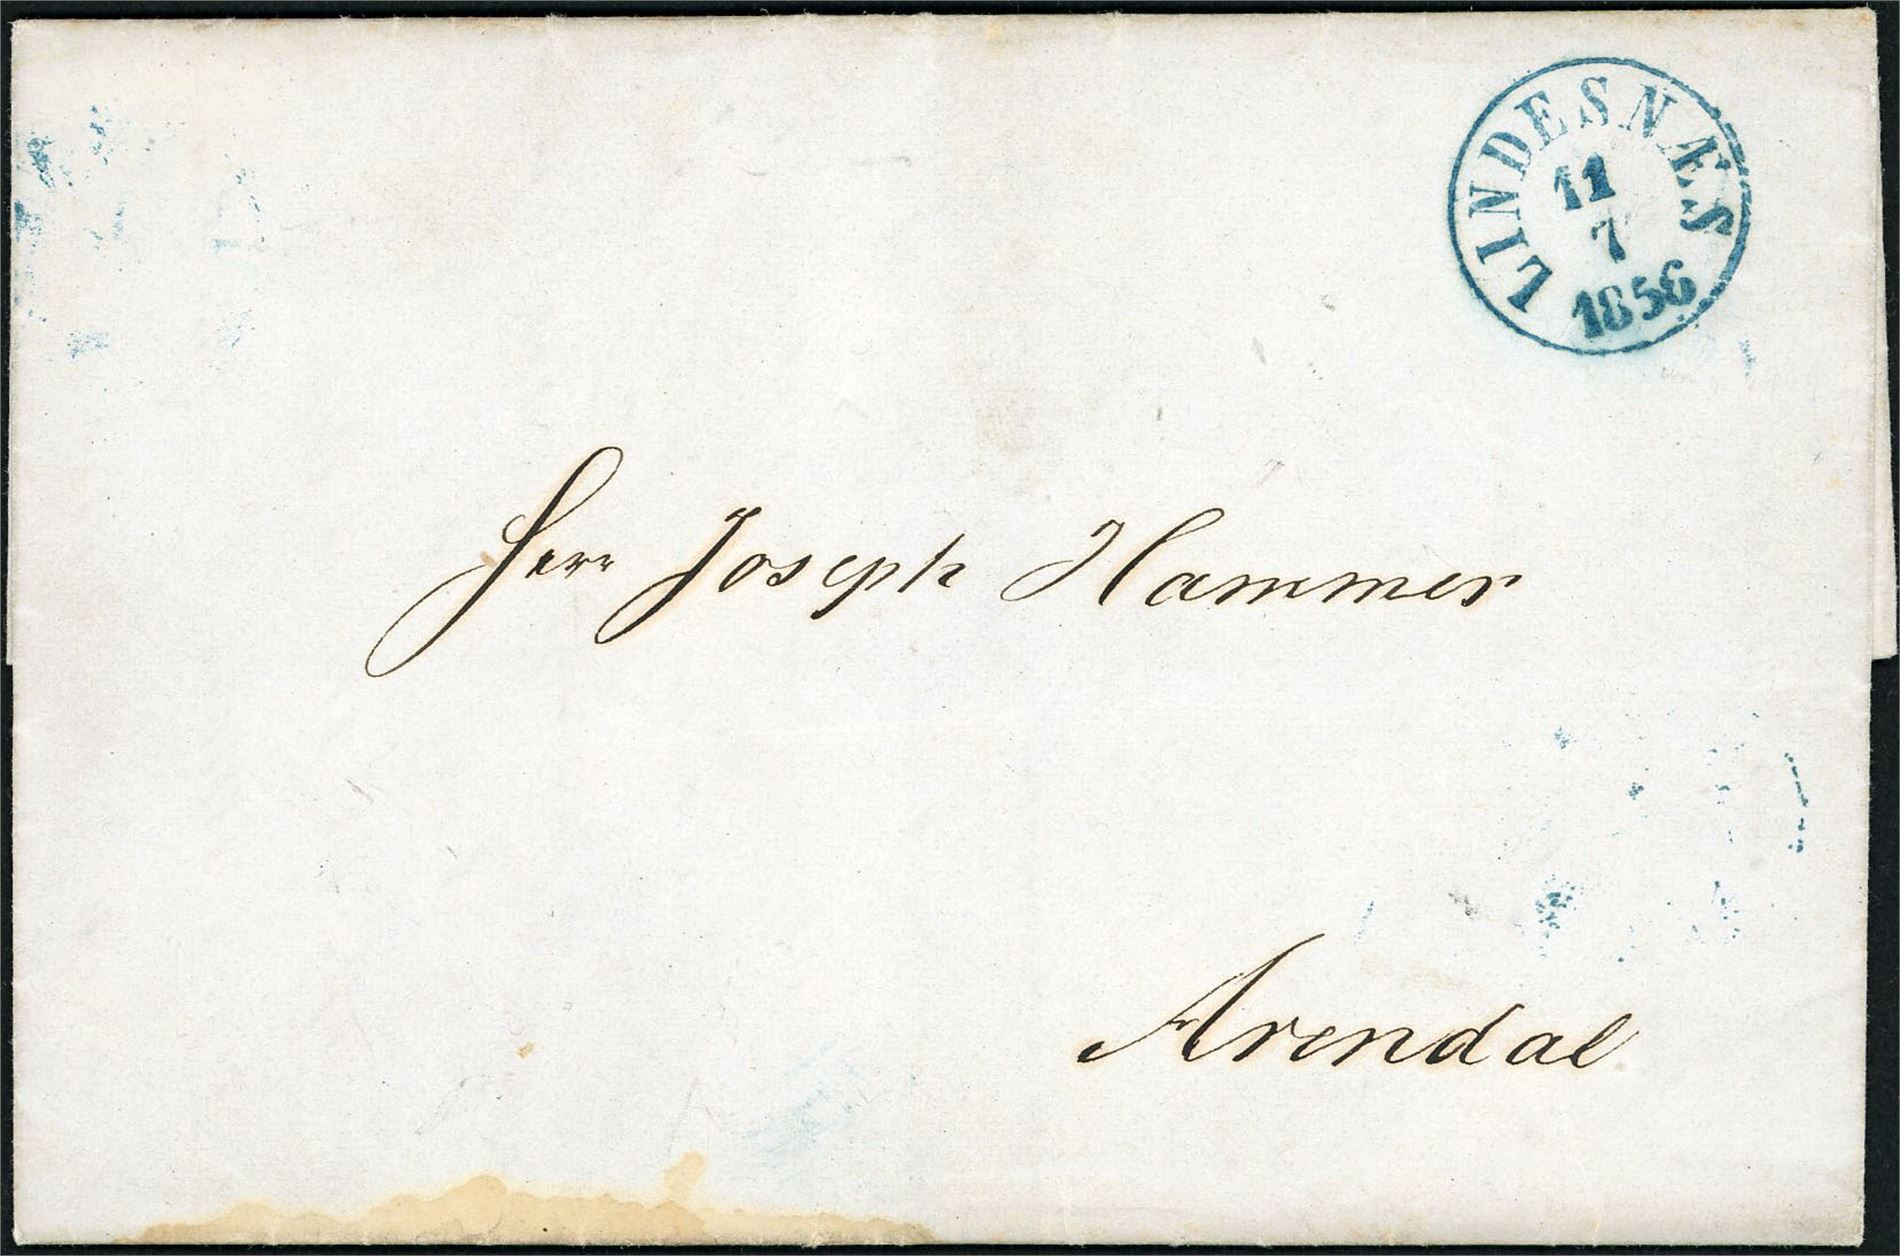 LINDESNÆS
11
7
1856
Herr Joseph Hammer
Arendal